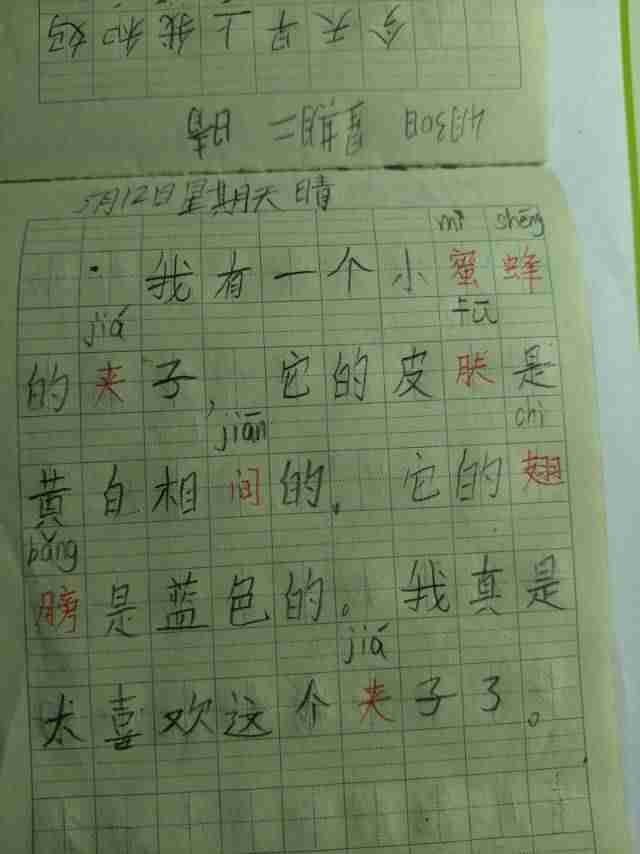 4月30日 星期二 晴
今天早上我和妈
5月12日星期天 晴
mì shēng
我有一个小蜜蜂
jiá fū
的夹子,它的皮肤是
jiān chì
黄白相间的。它的翅
bǎng
膀是蓝色的。我真是
jiá
太喜欢这个夹子了。